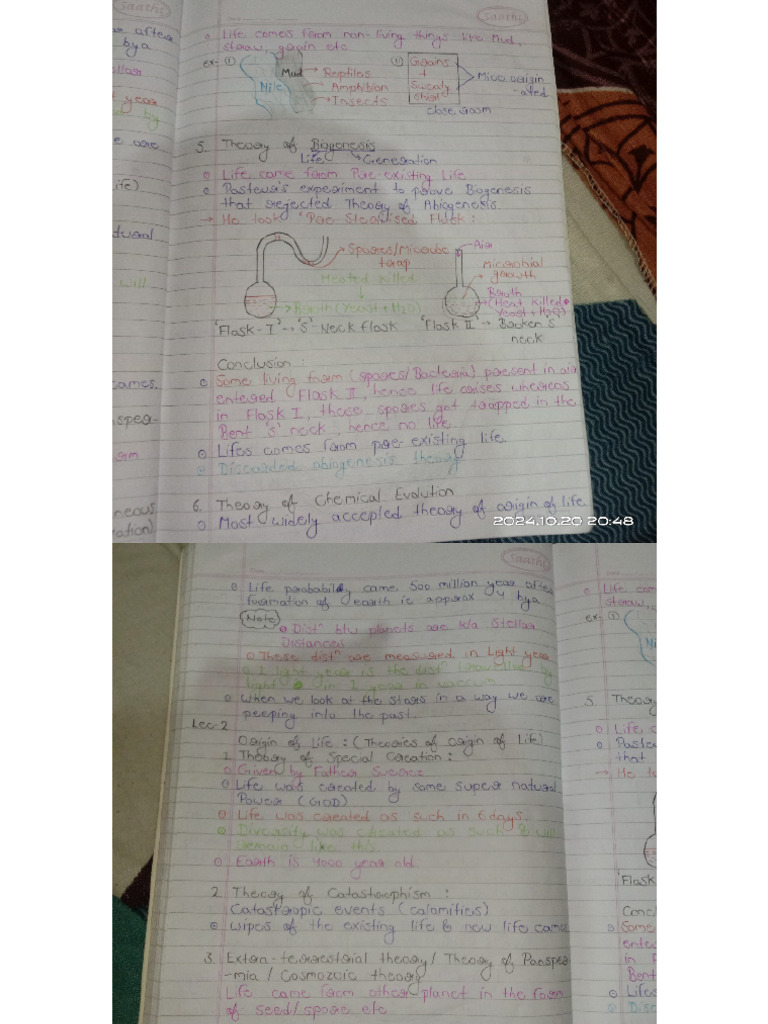 Saathi
Saathi
Life comes form non-living things like Mud,
straw, grain etc
ex- ①
Nile
Mud
Reptiles
Amphibian
Insects
①
Grains
+
Sweaty
Shirt
close room
Mice origin
-ated
5. Theory of Biogenesis
Life
Generation
Life come form Pre-existing Life
Pasteur's experiment to prove Biogenesis
that rejected Theory of Abiogenesis.
→ He look 'Pre-Sterilised Flask:
Spores/Microube
trap
Heated killed
Broth (Yeast + H2O)
Air
Microbial
growth
Broth
(Heat killed
Yeast + H2O)
'Flask-I' → 'S'-Neck flask
'Flask II' → Broken 'S'
neck
Conclusion:
Some living form (spores/Bacteria) present in air
entered Flask II, hence life arises whereas
in Flask I, these spores got trapped in the
Bent 'S' neck, hence no life
Lifes comes form pre-existing life.
Discarded abiogenesis theory.
6. Theory of Chemical Evolution
Most widely accepted theory of origin of life
2024.10.20 20:48
Saathi
Life probabily came 500 million year after
formation of earth ie approx 4 bya
Note
Distⁿ btw planets are k/a Stellar
Distances
These distⁿ are measured in Light year
1 light year is the distⁿ travelled by
light in 1 year in vaccum
When we look at the stars in a way we are
peeping into the past.
Lec-2
Origin of Life : (Theories of origin of Life)
1. Theory of Special Creation :
Given by Father Suarez
Life was created by some super natural
Power (GOD)
Life was created as such in 6 days.
Diversity was created as such & will
remain like this.
Earth is 4000 year old.
2. Theory of Catastrophism :
Catastropic events (calamities)
wipers of the existing life & new life came
3. Extra-terrestrial theory / Theory of Panspe
-mia / Cosmozoic theory
Life came form other planet in the form
of seed/spore etc